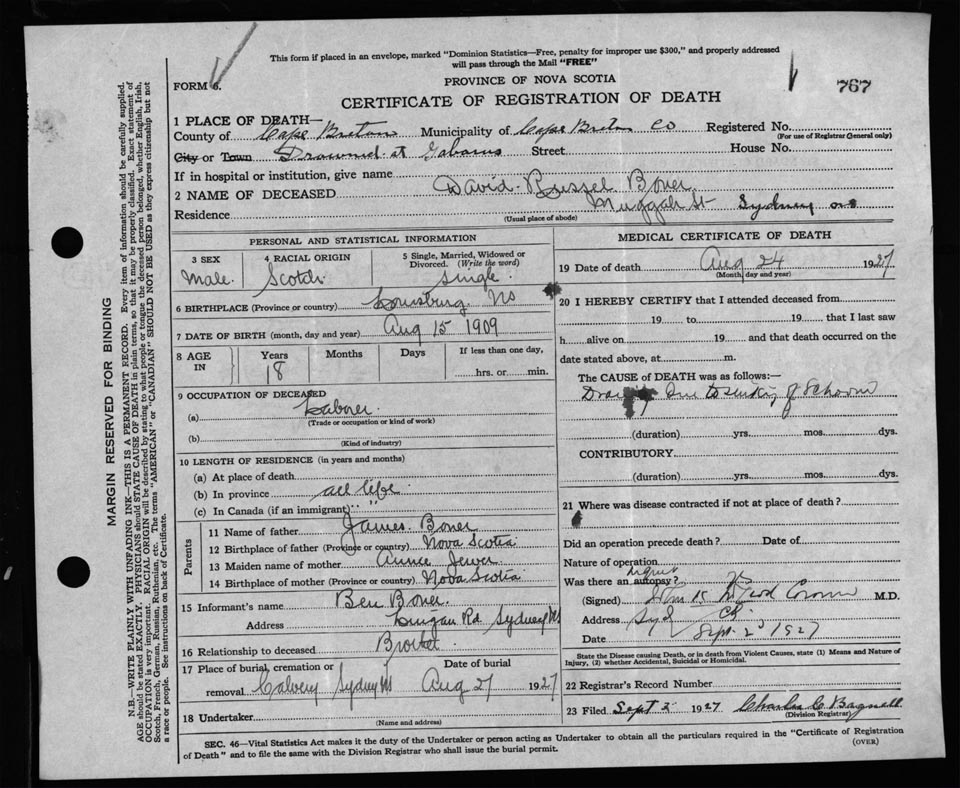 This form if placed in an envelope, marked "Dominion Statistics—Free, penalty for improper use $300," and properly addressed
will pass through the Mail "FREE"
FORM 6.
PROVINCE OF NOVA SCOTIA
767
CERTIFICATE OF REGISTRATION OF DEATH
1 PLACE OF DEATH—
County of Cape Breton Municipality of Cape Breton Co Registered No.
(For use of Registrar General only)
City or Town Drowned at Gabarus Street House No.
If in hospital or institution, give name
2 NAME OF DECEASED David Russel Boner
Residence Muggah St Sydney NS
(Usual place of abode)
PERSONAL AND STATISTICAL INFORMATION
3 SEX
Male
4 RACIAL ORIGIN
Scotch
5 Single, Married, Widowed or
Divorced. (Write the word)
Single
6 BIRTHPLACE (Province or country) Louisburg NS
7 DATE OF BIRTH (month, day and year) Aug 15 1909
8 AGE IN
Years Months Days If less than one day,
18 hrs. or min.
9 OCCUPATION OF DECEASED
(a) Laborer
(Trade or occupation or kind of work)
(b)
(Kind of industry)
10 LENGTH OF RESIDENCE (in years and months)
(a) At place of death
(b) In province all life
(c) In Canada (if an immigrant) " "
Parents
11 Name of father James Boner
12 Birthplace of father (Province or country) Nova Scotia
13 Maiden name of mother Annie
14 Birthplace of mother (Province or country) Nova Scotia
15 Informant's name Ben Boner
Address Lingan Rd Sydney NS
16 Relationship to deceased Brother
17 Place of burial, cremation or Date of burial
removal Calvery Sydney NS Aug 27 1927
18 Undertaker
(Name and address)
MEDICAL CERTIFICATE OF DEATH
19 Date of death Aug 24 1927
(Month, day and year)
20 I HEREBY CERTIFY that I attended deceased from
19 to 19 that I last saw
h alive on 19 and that death occurred on the
date stated above, at m.
The CAUSE of DEATH was as follows:—
Due to sinking of Schooner
(duration) yrs. mos. dys.
CONTRIBUTORY
(duration) yrs. mos. dys.
21 Where was disease contracted if not at place of death?
Did an operation precede death? Date of
Nature of operation
Was there an autopsy?
(Signed) Coroner M.D.
Address Syd CB
Date Sept. 2d 1927
State the Disease causing Death, or in death from Violent Causes, state (1) Means and Nature of
Injury, (2) whether Accidental, Suicidal or Homicidal.
22 Registrar's Record Number
23 Filed Sept 2 1927 Charles C Bagnell
(Division Registrar)
SEC. 46—Vital Statistics Act makes it the duty of the Undertaker or person acting as Undertaker to obtain all the particulars required in the "Certificate of Registration
of Death" and to file the same with the Division Registrar who shall issue the burial permit.
(OVER)
MARGIN RESERVED FOR BINDING
N.B.—WRITE PLAINLY WITH UNFADING INK—THIS IS A PERMANENT RECORD. Every item of information should be carefully supplied.
AGE should be stated EXACTLY. PHYSICIANS should STATE CAUSE OF DEATH in plain terms, so that it may be properly classified. Exact statement of
OCCUPATION is very important. RACIAL ORIGIN will be described by stating to what people or tongue the deceased person belonged, whether English, Irish,
Scotch, French, German, Russian, Ruthenian, etc. The terms "AMERICAN" or "CANADIAN" SHOULD NOT BE USED as they express citizenship but not
a race or people. See instructions on back of Certificate.